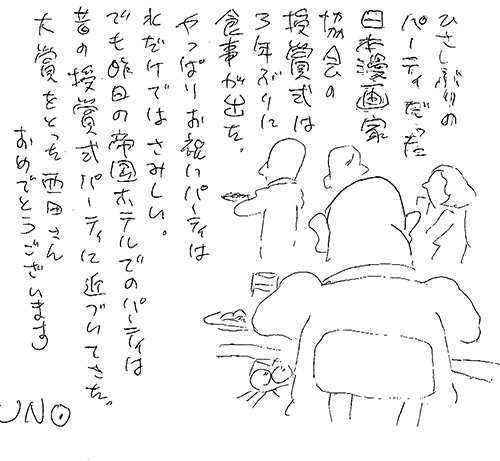 ひさしぶりの
パーティだった
日本漫画家
協会の
授賞式は
3年ぶりに
食事が出た。
やっぱりお祝いパーティは
水だけではさみしい。
でも昨日の帝国ホテルでのパーティは
昔の授賞式パーティに近づいてきた。
大賞をとった西田さん
おめでとうございます
UNO